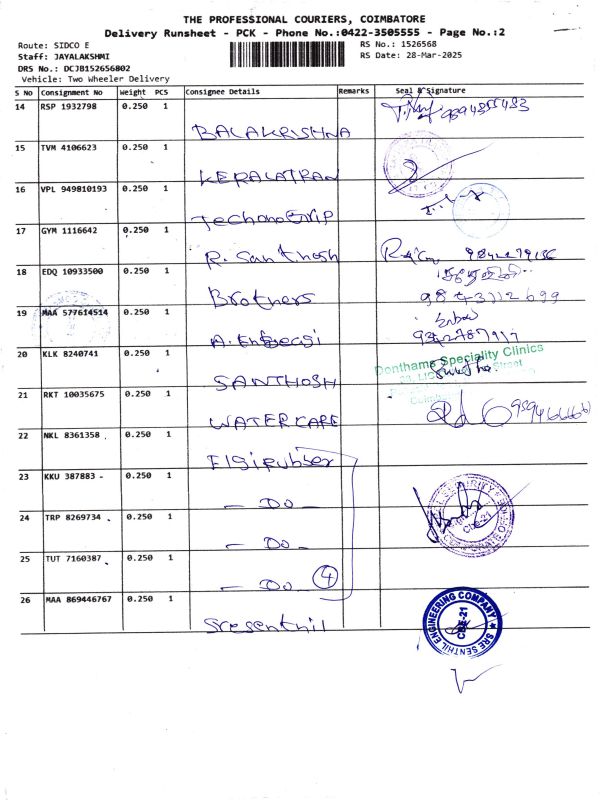 THE PROFESSIONAL COURIERS, COIMBATORE
Delivery Runsheet - PCK - Phone No.:0422-3505555 - Page No.:2
Route: SIDCO E
RS No.: 1526568
Staff: JAYALAKSHMI
RS Date: 28-Mar-2025
DRS No.: DCJB152656802
Vehicle: Two Wheeler Delivery
S NO Consignment No Weight PCS Consignee Details Remarks Seal & Signature
14 RSP 1932798 0.250 1
BALAKRISHNA
15 TVM 4106623 0.250 1
KERALATRAN
16 VPL 949810193 0.250 1
TechnoGrip
17 GYM 1116642 0.250 1
R. Santhosh
18 EDQ 10933500 0.250 1
Brothers
9843112699
19 MAA 577614514 0.250 1
20 KLK 8240741 0.250 1
SANTHOSH
Donthams Speciality Clinics
21 RKT 10035675 0.250 1
WATER CARE
22 NKL 8361358 0.250 1
Elgirubber
23 KKU 387883 0.250 1
- Do -
24 TRP 8269734 0.250 1
- Do -
CBE-21
25 TUT 7160387 0.250 1
- Do - 4
26 MAA 869446767 0.250 1
Sresenthil
SRE SENTHIL ENGINEERING COMPANY
CBE-21